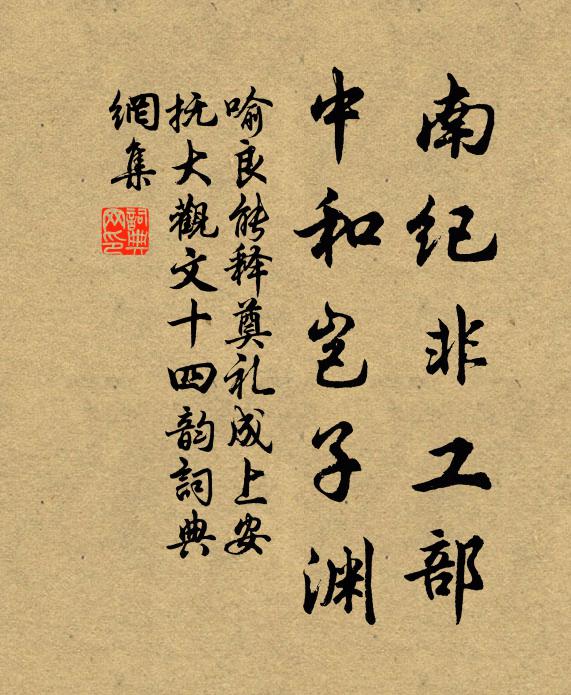 南纪非工部
中和岂子渊
喻良能释奠礼成上安
抚大觀文十四韵詞典
網集
詞典网印